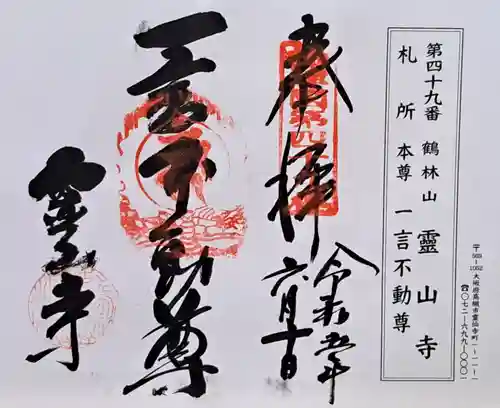 第四十九番 鶴林山 靈山寺
札所 本尊 一言不動尊
〒569-1052 大阪府高槻市霊仙寺町一-一一-一
☎〇七二-六九九-〇〇〇一
奉拝
令和五年
六月十日
一言不動尊
靈山寺